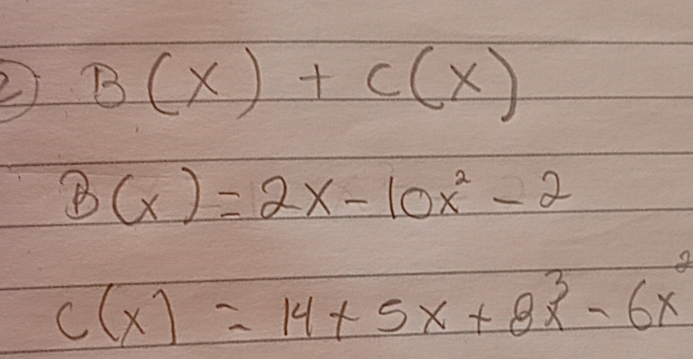 2) B(x) + C(x)
B(x) = 2x - 10x² - 2
C(x) = 14 + 5x + 8x³ - 6x²